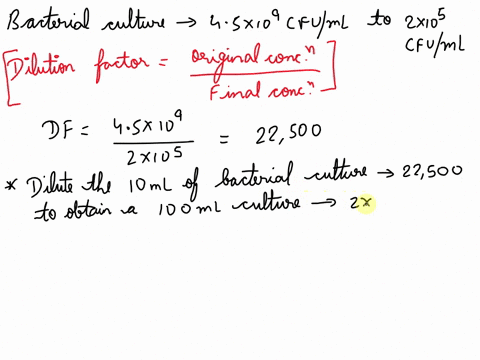 Bacterial culture → 4.5x10⁹ CFU/mL to 2x10⁵ CFU/mL
[Dilution factor = Original conc.ⁿ / Final conc.ⁿ]
DF = 4.5x10⁹ / 2x10⁵ = 22,500
* Dilute the 10mL of bacterial culture → 22,500
to obtain a 100mL culture → 2x